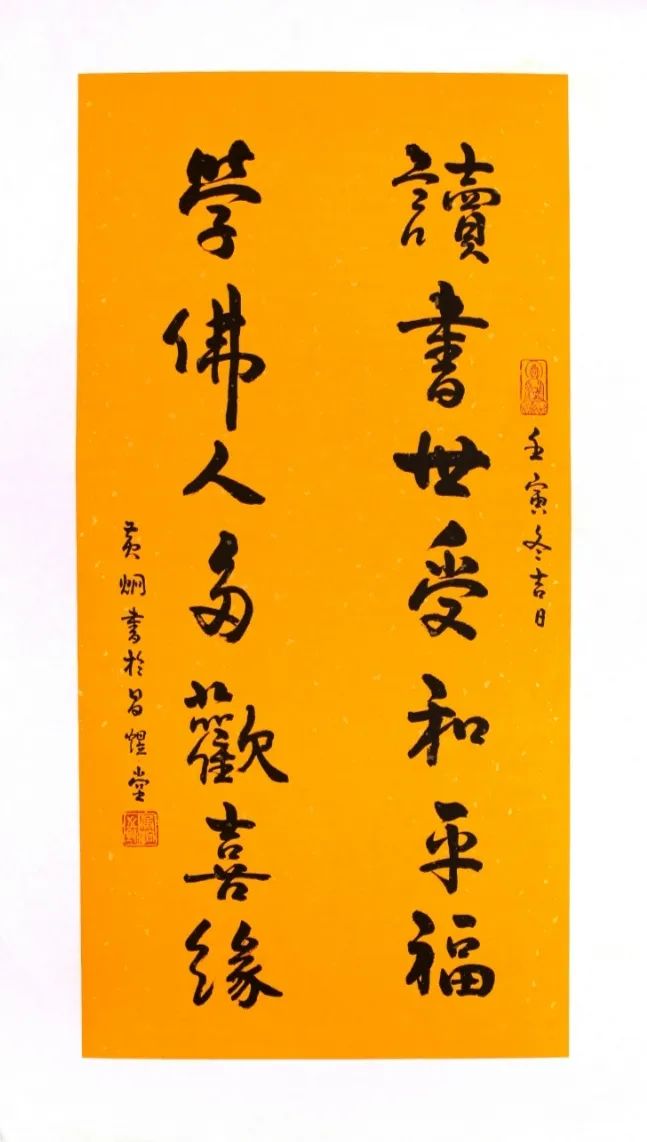 讀書世受和平福
壬寅冬吉日
學佛人多歡喜緣
黄炯書於昌煜堂